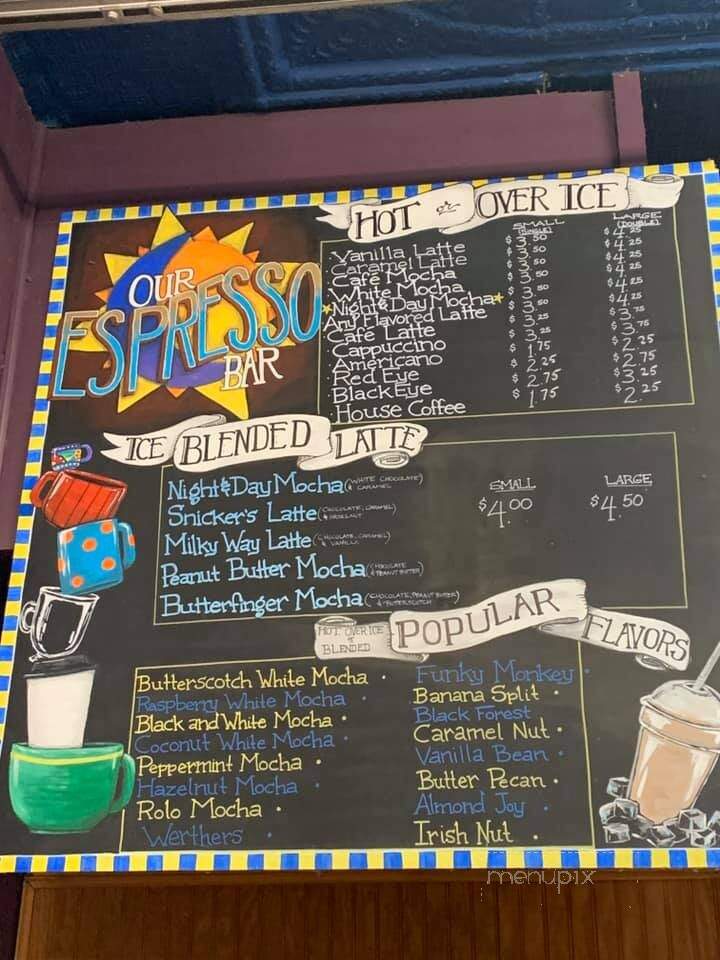 OUR
ESPRESSO
BAR
HOT or OVER ICE
SMALL (SINGLE) LARGE (DOUBLE)
Vanilla Latte $3.50 $4.25
Caramel Latte $3.50 $4.25
Café Mocha $3.50 $4.25
White Mocha $3.50 $4.25
*Night & Day Mocha* $3.50 $4.25
Any Flavored Latte $3.50 $4.25
Café Latte $3.25 $3.75
Cappuccino $3.25 $3.75
Americano $1.75 $2.25
Red Eye $2.25 $2.75
Black Eye $2.75 $3.25
House Coffee $1.75 $2.25
ICE BLENDED LATTE
SMALL LARGE
$4.00 $4.50
Night & Day Mocha (WHITE CHOCOLATE & CARAMEL)
Snicker's Latte (CHOCOLATE, CARAMEL & HAZELNUT)
Milky Way Latte (CHOCOLATE, CARAMEL & VANILLA)
Peanut Butter Mocha (CHOCOLATE & PEANUT BUTTER)
Butterfinger Mocha (CHOCOLATE, PEANUT BUTTER & BUTTERSCOTCH)
HOT, OVER ICE or BLENDED
POPULAR FLAVORS
Butterscotch White Mocha •
Raspberry White Mocha •
Black and White Mocha •
Coconut White Mocha •
Peppermint Mocha •
Hazelnut Mocha •
Rolo Mocha •
Werthers •
Funky Monkey •
Banana Split •
Black Forest •
Caramel Nut •
Vanilla Bean •
Butter Pecan •
Almond Joy •
Irish Nut •
menupix